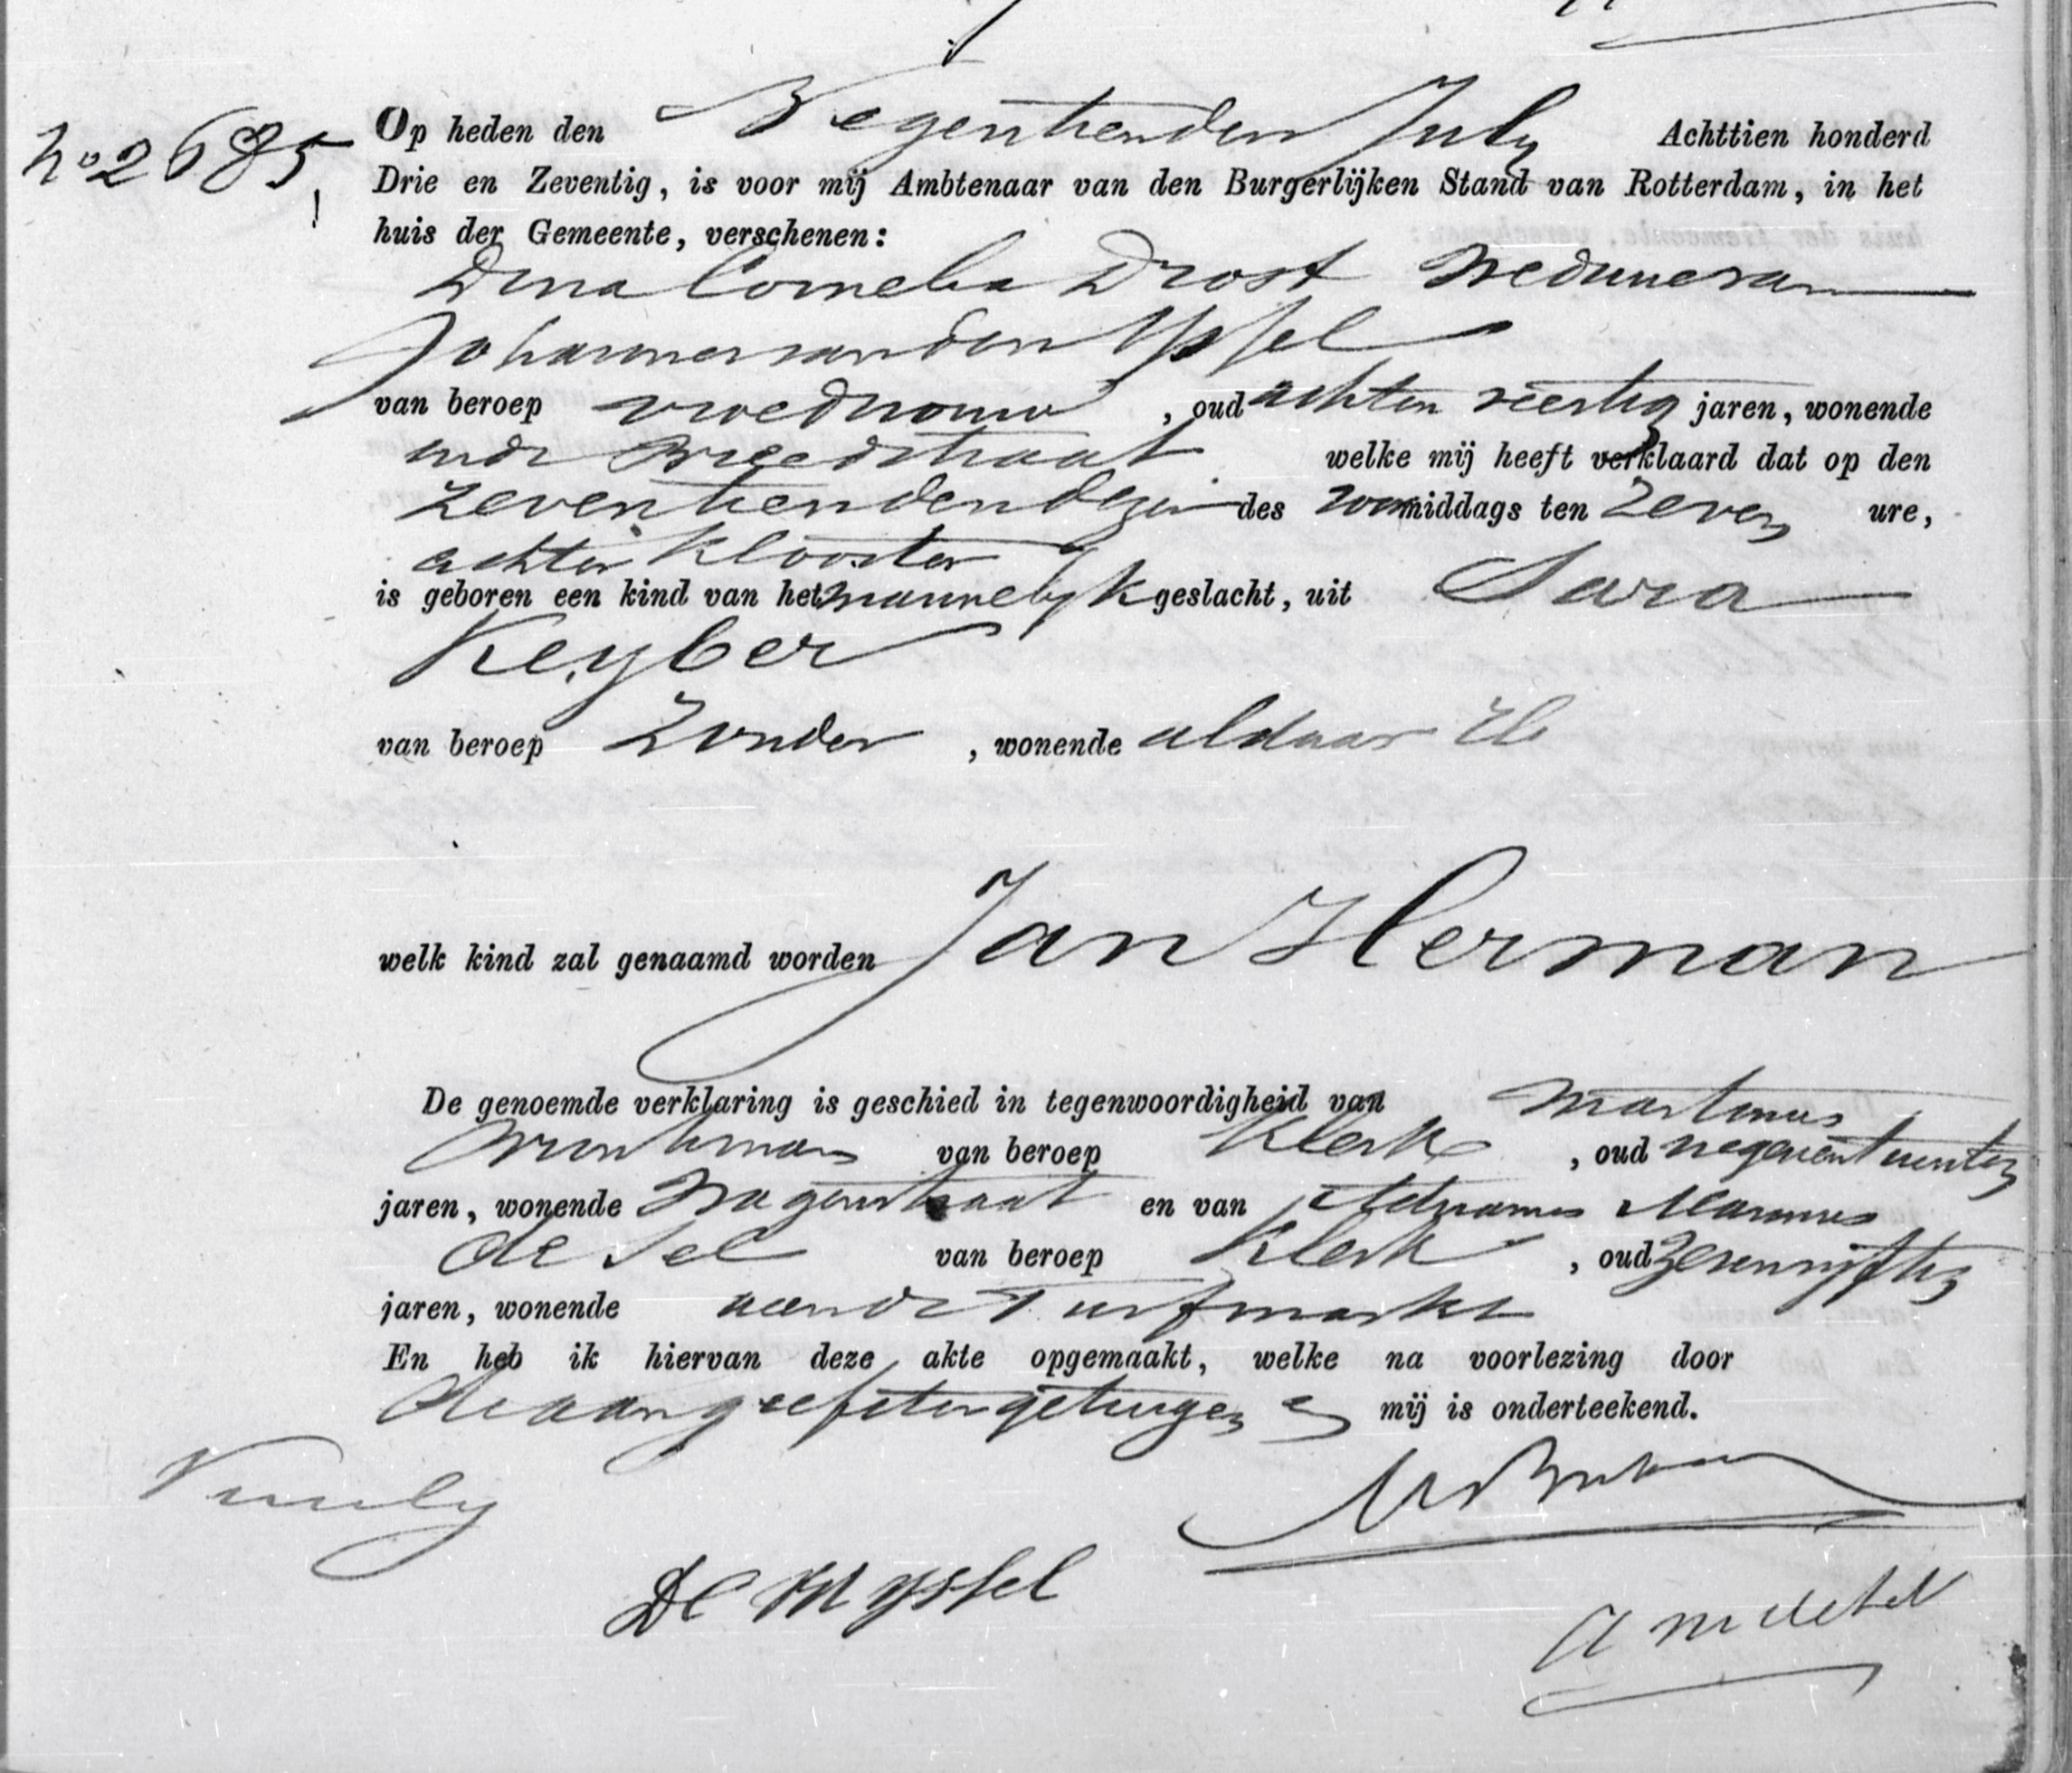 No 2685
Op heden den Negentienden July Achttien honderd
Drie en Zeventig, is voor mij Ambtenaar van den Burgerlijken Stand van Rotterdam, in het
huis der Gemeente, verschenen:
Dina Cornelia Drost Weduwe van
Johannes van den Yssel
van beroep vroedvrouw, oud achtenveertig jaren, wonende
in de Breedstraat welke mij heeft verklaard dat op den
zeventienden dezer des voormiddags ten Zeven ure,
achter Klooster
is geboren een kind van het mannelyk geslacht, uit Sara
Keyber
van beroep Zonder, wonende aldaar
welk kind zal genaamd worden Jan Herman
De genoemde verklaring is geschied in tegenwoordigheid van Martinus
van beroep Klerk, oud negenentwintig
jaren, wonende Wagenstraat en van Adrianus Marinus
de Sel van beroep Klerk, oud Zevenvyftig
jaren, wonende aan de Turfmarkt
En heb ik hiervan deze akte opgemaakt, welke na voorlezing door
de aangeefster getuigen en mij is onderteekend.
A M de Sel